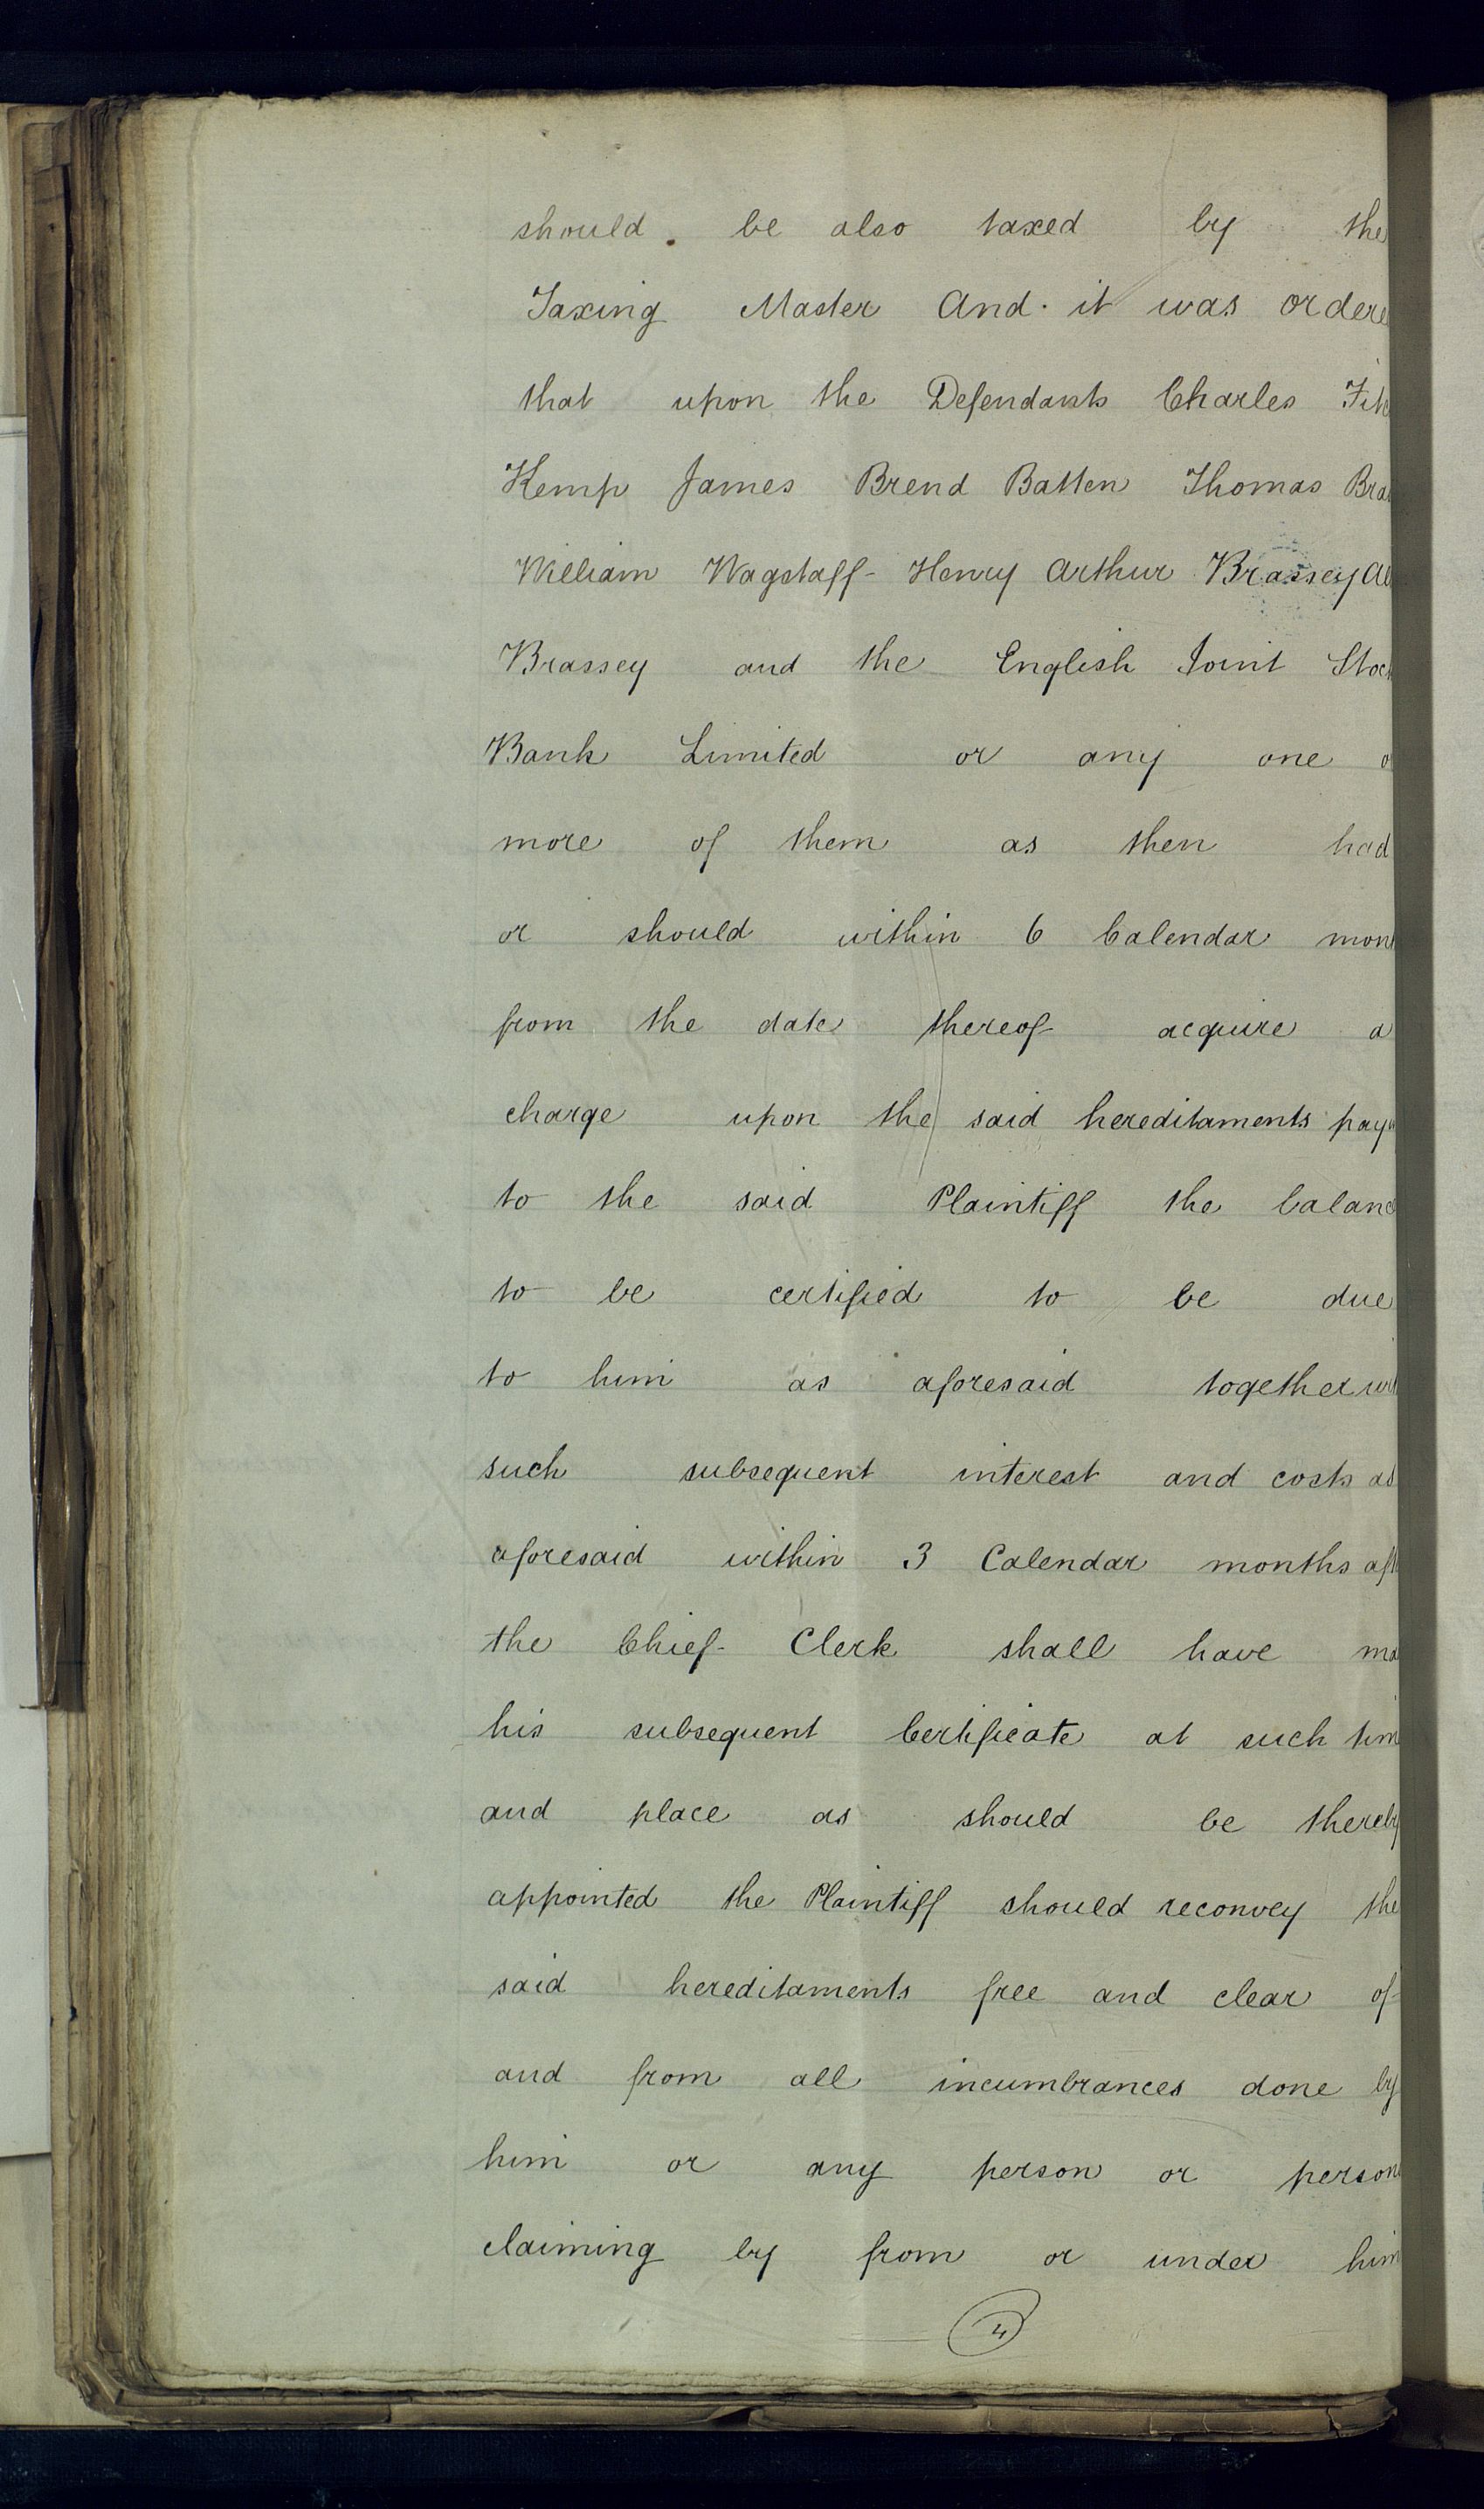 should be also taxed by the
Taxing Master And it was ordere
that upon the Defendants Charles Fit
Kemp James Brend Batten Thomas Bra
William Wagstaff Henry Arthur Brassey Al
Brassey and the English Joint Stoc
Bank Limited or any one o
more of them as then had
or should within 6 Calendar mon
from the date thereof acquire a
charge upon the said hereditaments pay
to the said Plaintiff the balanc
to be certified to be due
to him as aforesaid together wit
such subsequent interest and costs as
aforesaid within 3 Calendar months aft
the Chief Clerk shall have ma
his subsequent Certificate at such tim
and place as should be thereby
appointed the Plaintiff should reconvey the
said hereditaments free and clear of
and from all incumbrances done by
him or any person or person
claiming by from or under him
4